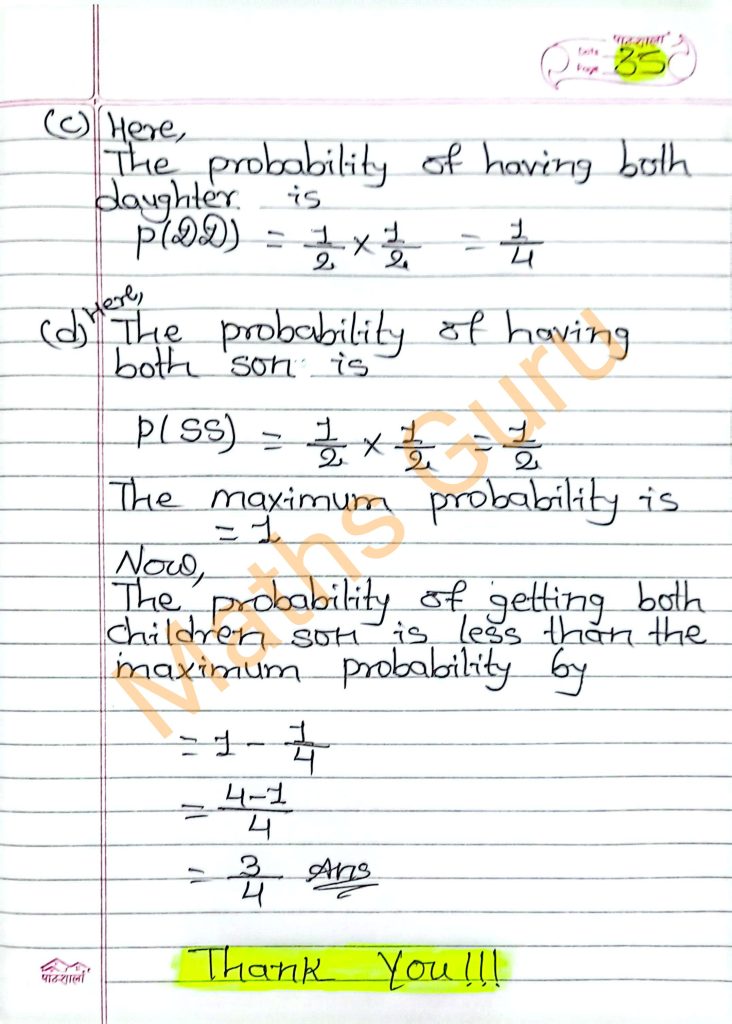 पाठशाला
Date
Page 35
(c) Here,
The probability of having both
daughter is
P(DD) = 1/2 × 1/2 = 1/4
Here,
(d) The probability of having
both son is
P(SS) = 1/2 × 1/2 = 1/2
The maximum probability is
= 1
Now,
The probability of getting both
children son is less than the
maximum probability by
= 1 - 1/4
= 4-1/4
= 3/4 Ans
Thank You!!!
पाठशाला
Maths Guru